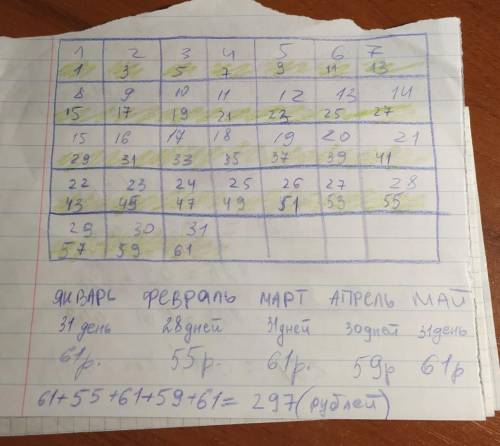 1 2 3 4 5 6 7
1 3 5 7 9 11 13
8 9 10 11 12 13 14
15 17 19 21 23 25 27
15 16 17 18 19 20 21
29 31 33 35 37 39 41
22 23 24 25 26 27 28
43 45 47 49 51 53 55
29 30 31
57 59 61
ЯНВАРЬ ФЕВРАЛЬ МАРТ АПРЕЛЬ МАЙ
31 день 28 дней 31 дней 30 дней 31 день
61р. 55р. 61р. 59р 61р
61+55+61+59+61= 297(рублей)